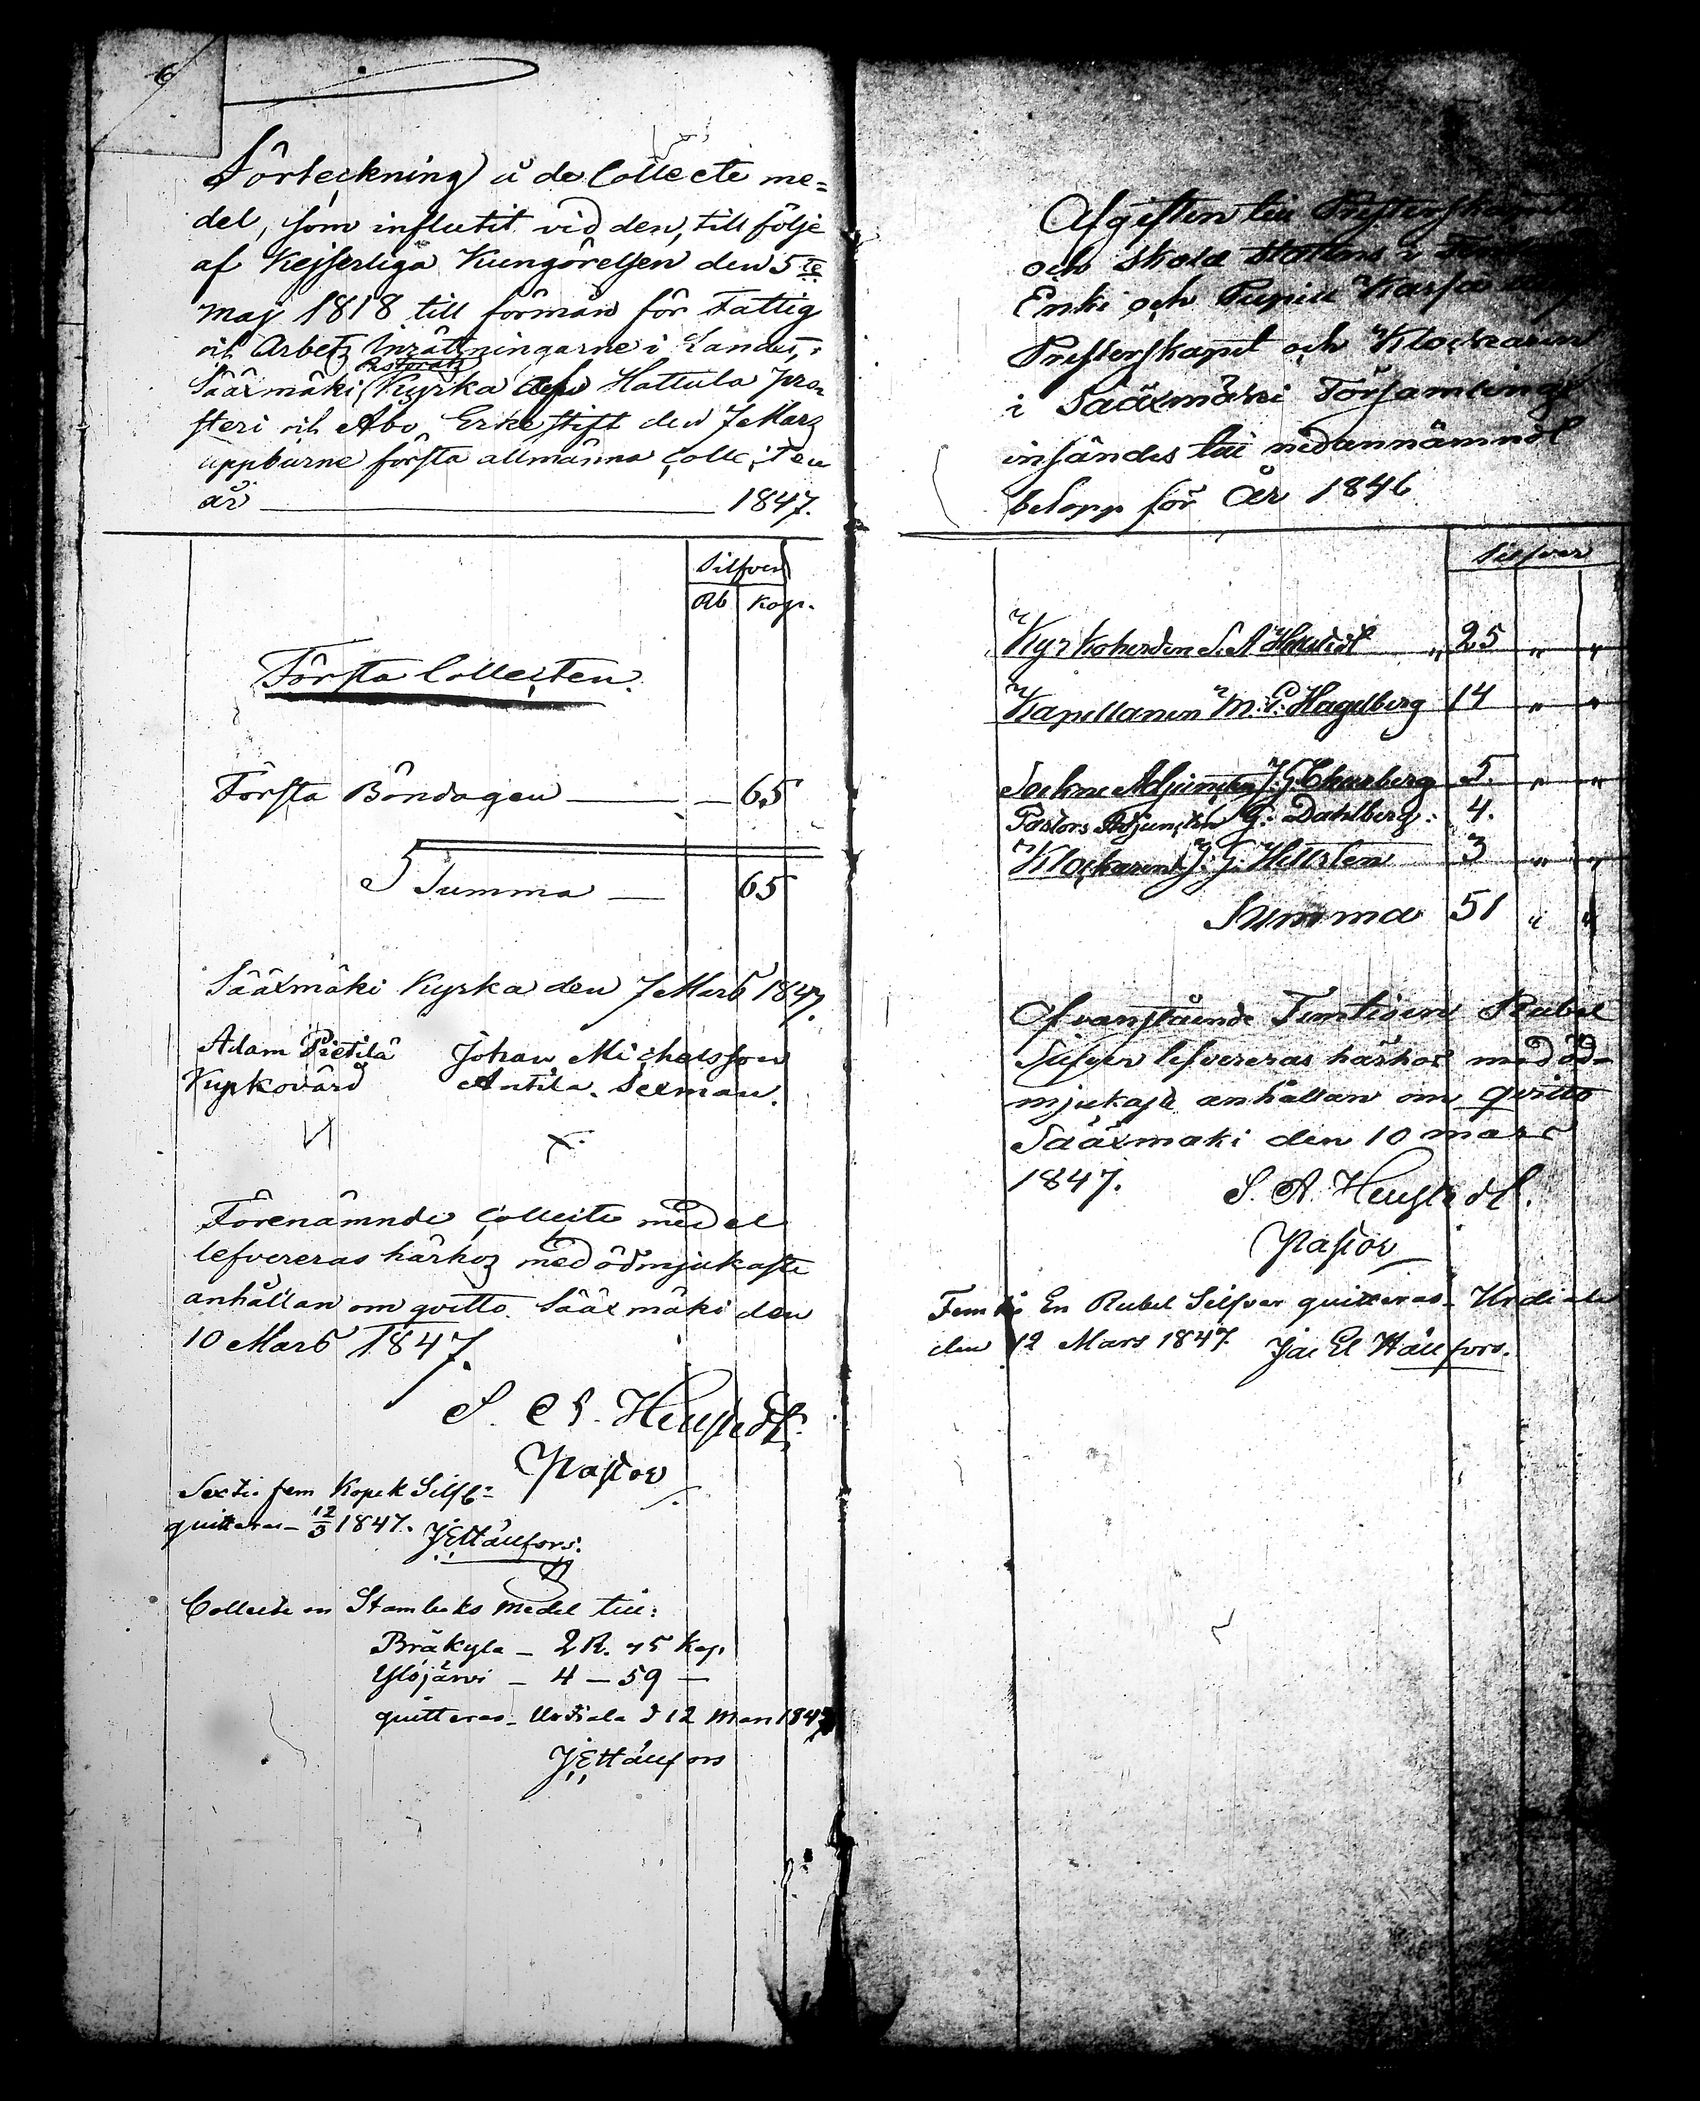 6
Förteckning å de Collecte me=
del, som influtit vid den, till följe
af Kejserliga Kungörelsen den 5te
Maj 1818 till förmån för Fattig
och Arbetz Inrättningarne i Landet, i
Pastorat
Sääxmäki Kyrka af Hattula pro
steri och Åbo Erke stift den 7 Mars
uppburne första allmänna Collecten
år 1847.
Silfver
Rb Kop.
Första Collecten.
Första Böndagen — 65
Summa — 65
Sääxmäki Kyrka den 7 Mars 1847.
Adam Pietilä Johan Michelsson
Kyrkovärd Antila. Sexman.
Förenämnde Collecte medel
lefvereras härhoz med ödmjukaste
anhållan om qvitto. Sääxmäki den
10 Mars 1847.
S. A. Heustedt.
Pastor
Sextio fem Kopek Silfv=
quitteras 12/3 1847. J E Hällfors.
Collecte och Stamboks medel till:
Bräkyla — 2 R. 75 Kop
Ylöjärvi — 4 — 59 —
quitteras. Urdiala d 12 Mars 1847
J E Hällfors
Afgiften till Presterskapets
och Skole Statens i
Enke och Pupill Kassa
Presterskapet och Klockaren
i Sääxmäki Församling
insändes till nedannämndt
belopp för år 1846
Silfver
Kyrkoherden S. A Heustedt " 25 " "
Kapellanen M. C. Hagelberg 14 " "
Sockne Adjuncten J. G. Churberg 5. " "
Pastors Adjuncten G. Dahlberg. 4.
Klockaren J. G. Hellsten 3 " "
Summa 51 " "
Ofvanstående Femtioen Rubel
Silfver lefvereras härhos med öd=
mjukaste anhållan om qvitto
Sääxmäki den 10 Mars
1847. S. A. Heustedt.
Pastor
Femtio En Rubel Silfver quitteras. Urdiala
den 12 Mars 1847. Jac El Hällfors.